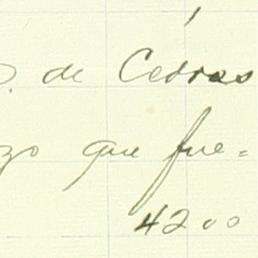 de Cedros
zo que fue=
4200